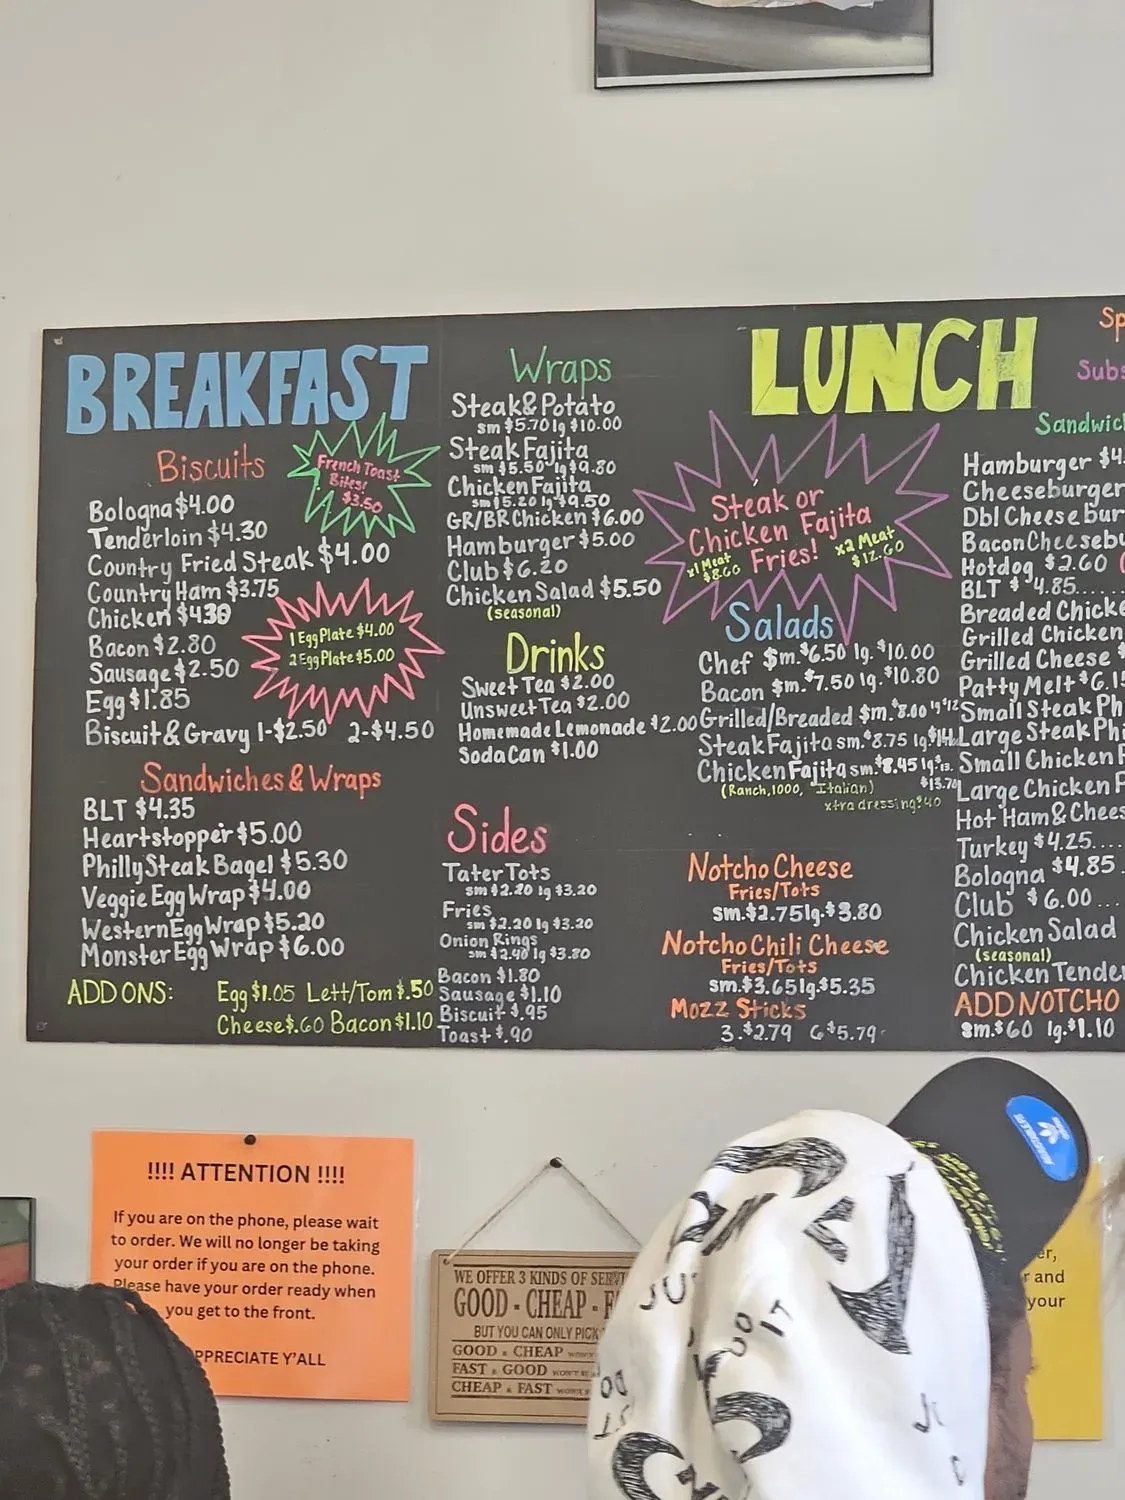 BREAKFAST
Biscuits
Bologna $4.00
Tenderloin $4.30
Country Fried Steak $4.00
Country Ham $3.75
Chicken $4.30
Bacon $2.80
Sausage $2.50
Egg $1.85
Biscuit & Gravy 1-$2.50 2-$4.50
French Toast
Bites!
$3.50
1 Egg Plate $4.00
2 Egg Plate $5.00
Sandwiches & Wraps
BLT $4.35
Heartstopper $5.00
Philly Steak Bagel $5.30
Veggie Egg Wrap $4.00
Western Egg Wrap $5.20
Monster Egg Wrap $6.00
ADD ONS: Egg $1.05 Lett/Tom $.50
Cheese $.60 Bacon $1.10
Wraps
Steak & Potato
sm $5.70 lg $10.00
Steak Fajita
sm $5.50 lg $9.80
Chicken Fajita
sm $5.20 lg $9.50
GR/BR Chicken $6.00
Hamburger $5.00
Club $6.20
Chicken Salad $5.50
(seasonal)
Drinks
Sweet Tea $2.00
Unsweet Tea $2.00
Homemade Lemonade $2.00
Soda Can $1.00
Sides
Tater Tots
sm $2.20 lg $3.20
Fries
sm $2.20 lg $3.20
Onion Rings
sm $2.40 lg $3.80
Bacon $1.80
Sausage $1.10
Biscuit $.95
Toast $.90
LUNCH
Steak or
Chicken Fajita
Fries!
x1 Meat
$8.60
x2 Meat
$12.60
Salads
Chef $m. $6.50 lg. $10.00
Bacon $m. $7.50 lg. $10.80
Grilled/Breaded $m. $8.00 lg $12
Steak Fajita sm. $8.75 lg.
Chicken Fajita sm. $8.45 lg $13.
$13.70
(Ranch, 1000, Italian)
xtra dressing $.40
Notcho Cheese
Fries/Tots
sm. $2.75 lg. $3.80
Notcho Chili Cheese
Fries/Tots
sm. $3.65 lg. $5.35
Mozz Sticks
3. $2.79 6 $5.79
Sp
Subs
Sandwich
Hamburger $4.
Cheeseburger
Dbl Cheesebur
Bacon Cheesebu
Hotdog $2.60
BLT $4.85.....
Breaded Chicke
Grilled Chicken
Grilled Cheese $
Patty Melt $6.1
Small Steak Ph
Large Steak Phi
Small Chicken P
Large Chicken P
Hot Ham & Chees
Turkey $4.25....
Bologna $4.85.
Club $6.00...
Chicken Salad
(seasonal)
Chicken Tender
ADD NOTCHO
sm. $.60 lg. $1.10
!!!! ATTENTION !!!!
If you are on the phone, please wait
to order. We will no longer be taking
your order if you are on the phone.
Please have your order ready when
you get to the front.
PPRECIATE Y'ALL
WE OFFER 3 KINDS OF SERVI
GOOD - CHEAP - F
BUT YOU CAN ONLY PICK
GOOD & CHEAP WON'T
FAST & GOOD WON'T BE
CHEAP & FAST WON'T
er,
r and
your